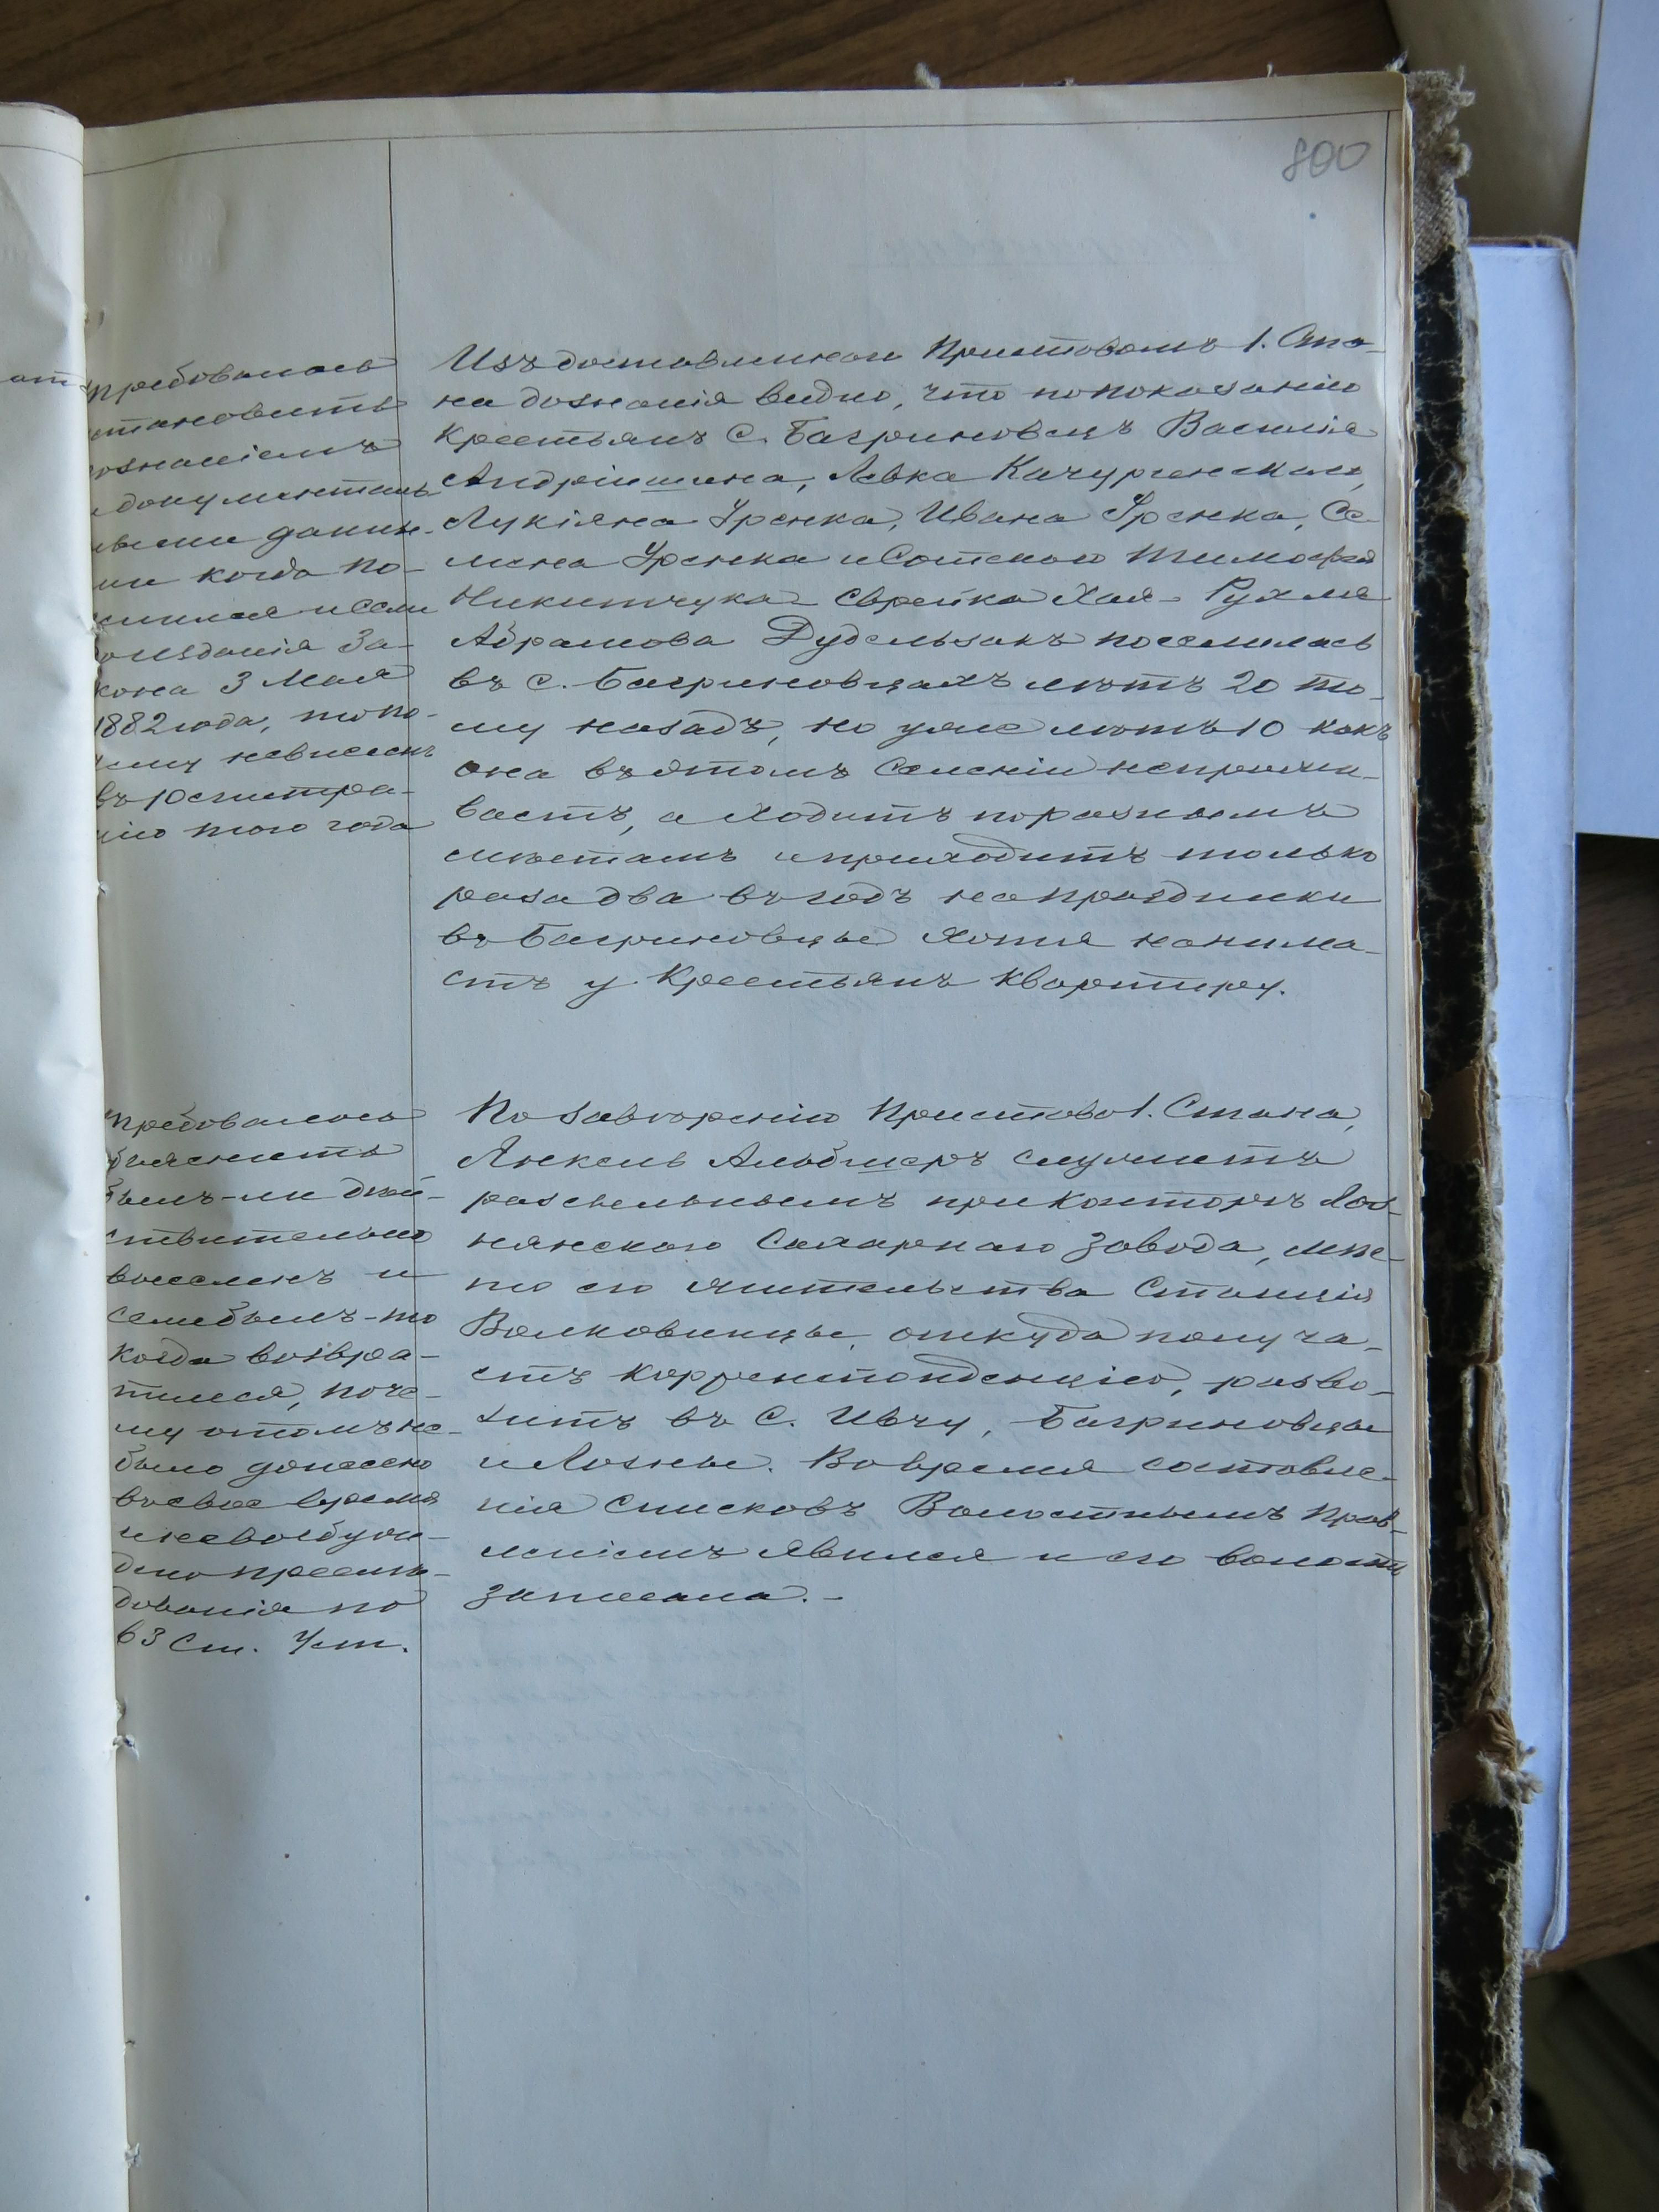 800
требовалось
становить
дознаніемъ
документаль
ными данны-
ми когда по-
селился и если
до изданія За-
кона 3 Мая
1882 года, то по-
чему не внесенъ
въ 10 регистра-
цію того года
Изъ доставленнаго Приставомъ 1. Ста-
на дознанія видно, что по показанію
крестьянъ с. Багриновецъ Василія
Андріишина, Левка Качурческаго,
Лукіяна Уренка, Ивана Уренка, Се-
мена Уренка и Сотскаго Тимофея
Никитчука Еврейка Хая-Рухля
Абрамова Дудельзакъ поселилась
въ с. Багриновцахъ лѣтъ 20 то-
му назадъ, но уже лѣтъ 10 какъ
она въ этомъ селеніи не прожи-
ваетъ, а ходитъ по разнымъ
мѣстамъ и приходитъ только
раза два въ годъ на праздники
въ Багриновцы хотя нанима-
етъ у крестьянъ квартиру.
требовалось
объяснить
былъ-ли дѣй-
ствительно
выселенъ и
если былъ-то
когда возвра-
тился, поче-
му о томъ не-
было донесено
въ свое время
и не возбуж-
дено преслѣ-
дованія по
63 Ст. Уст.
По завѣренію Пристава 1. Стана,
Янкель Альбмеръ служитъ
разсыльнымъ при конторѣ Лоз-
нянскаго Сахарнаго завода, мѣс-
то его жительства Станція
Волковинцы, откуда получа-
етъ корреспонденцію, разво-
зитъ въ с. Ивчу, Багриновцы
и Лозны. Во время составле-
нія списковъ Волостнымъ прав-
леніемъ явился и его волость
записала.-